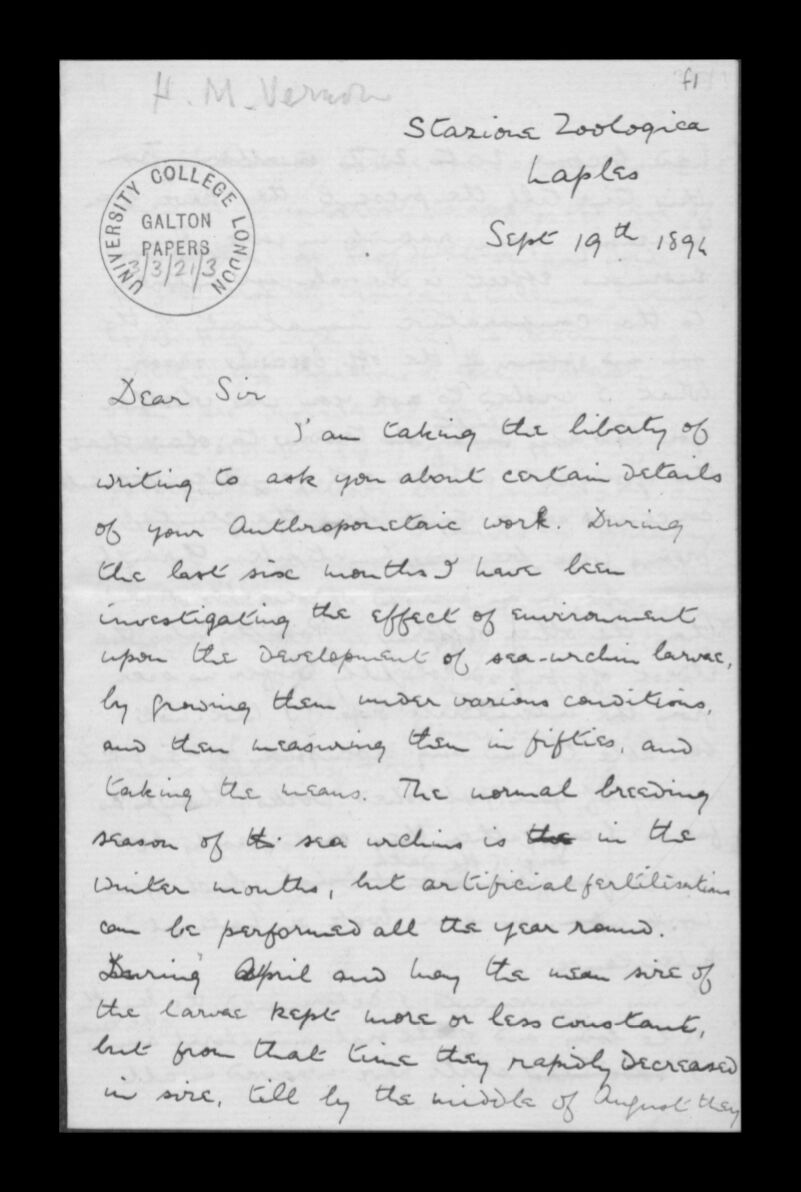 H. M. Vernon
f1
Stazione Zoologica
Naples
Sept 19th 1894
UNIVERSITY COLLEGE LONDON
GALTON
PAPERS
3/3/21/3
Dear Sir
I am taking the liberty of
writing to ask you about certain details
of your Anthropometric work. During
the last six months I have been
investigating the effect of environment
upon the development of sea-urchin larvae,
by growing them under various conditions,
and then measuring them in fifties, and
taking the means. The normal breeding
season of the sea urchins is the in the
winter months, but artificial fertilisations
can be performed all the year round.
During April and May the mean size of
the larvae kept more or less constant,
but from that time they rapidly decreased
in size, till by the middle of August they